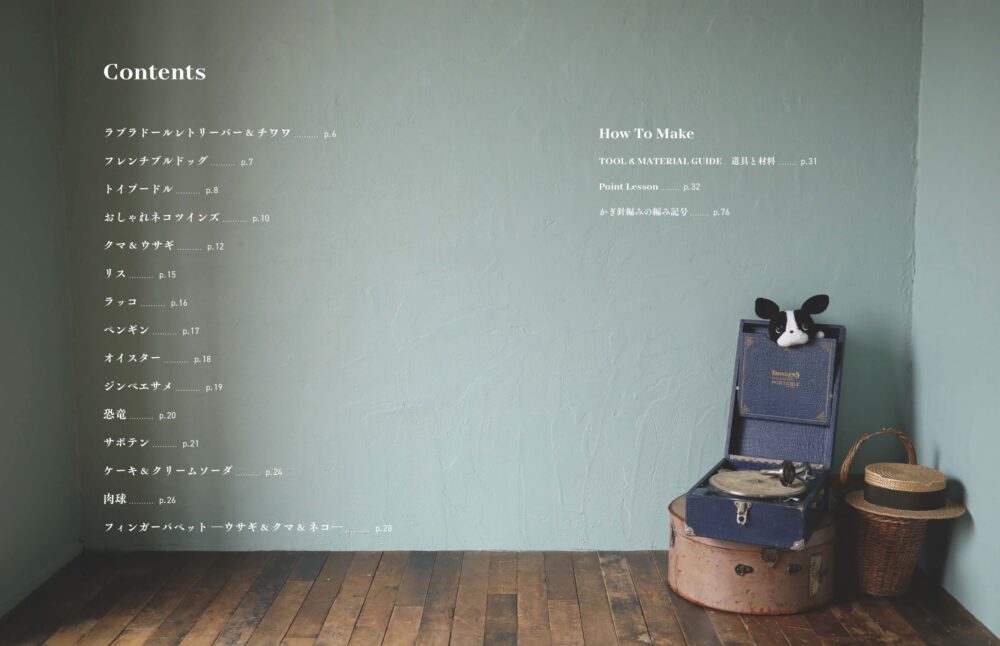 Contents
ラブラドールレトリーバー & チワワ ......... p.6
フレンチブルドッグ ......... p.7
トイプードル ......... p.8
おしゃれネコツインズ ......... p.10
クマ & ウサギ ......... p.12
リス ......... p.15
ラッコ ......... p.16
ペンギン ......... p.17
オイスター ......... p.18
ジンベエザメ ......... p.19
恐竜 ......... p.20
サボテン ......... p.21
ケーキ & クリームソーダ ......... p.24
肉球 ......... p.26
フィンガーパペット ―ウサギ & クマ & ネコ― ......... p.28
How To Make
TOOL & MATERIAL GUIDE 道具と材料 ....... p.31
Point Lesson ....... p.32
かぎ針編みの編み記号 ....... p.76
PORTABLE